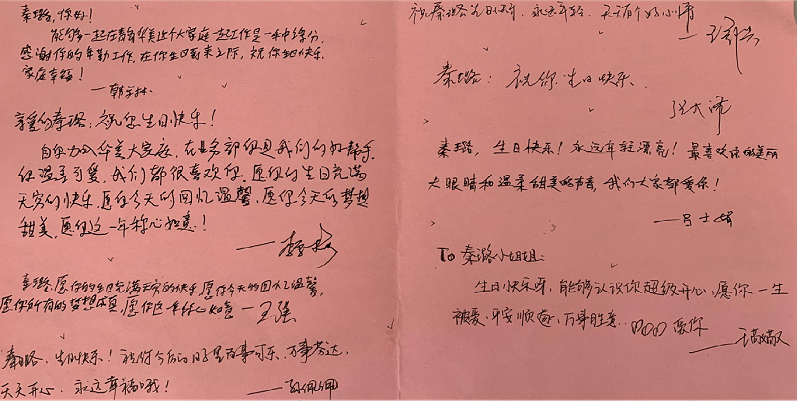 秦璐,你好!
能够一起在静华美这个大家庭一起工作是一种缘分,
感谢你的辛勤工作,在你生日到来之际,祝你生日快乐,
家庭幸福!
亲爱的秦璐:祝您生日快乐!
自你加入华美大家庭,在业务部你是我们的好帮手,
你温柔可爱,我们都很喜欢你,愿你的生日充满
无穷的快乐,愿你今天的回忆温馨,愿你今天的梦想
甜美,愿你这一年称心如意!
——李
秦璐,愿你的生日充满无穷的快乐,愿你今天的回忆温馨,
愿你所有的梦想成真,愿你这一年称心如意 —王强
秦璐,生日快乐!祝你今后的日子里百事可乐,万事芬达,
天天开心,永远幸福哦!
——孙佩佩
祝秦璐生日快乐,永远年轻,天天有个好心情
王
秦璐:祝你生日快乐.
张大
秦璐,生日快乐!永远年轻漂亮!最喜欢你的美丽
大眼睛和温柔甜美的声音,我们大家都爱你!
——吕士
To 秦璐小姐姐:
生日快乐呀,能够认识你超级开心,愿你一生
被爱,平安顺遂,万事胜意..爱你
——王敬敬